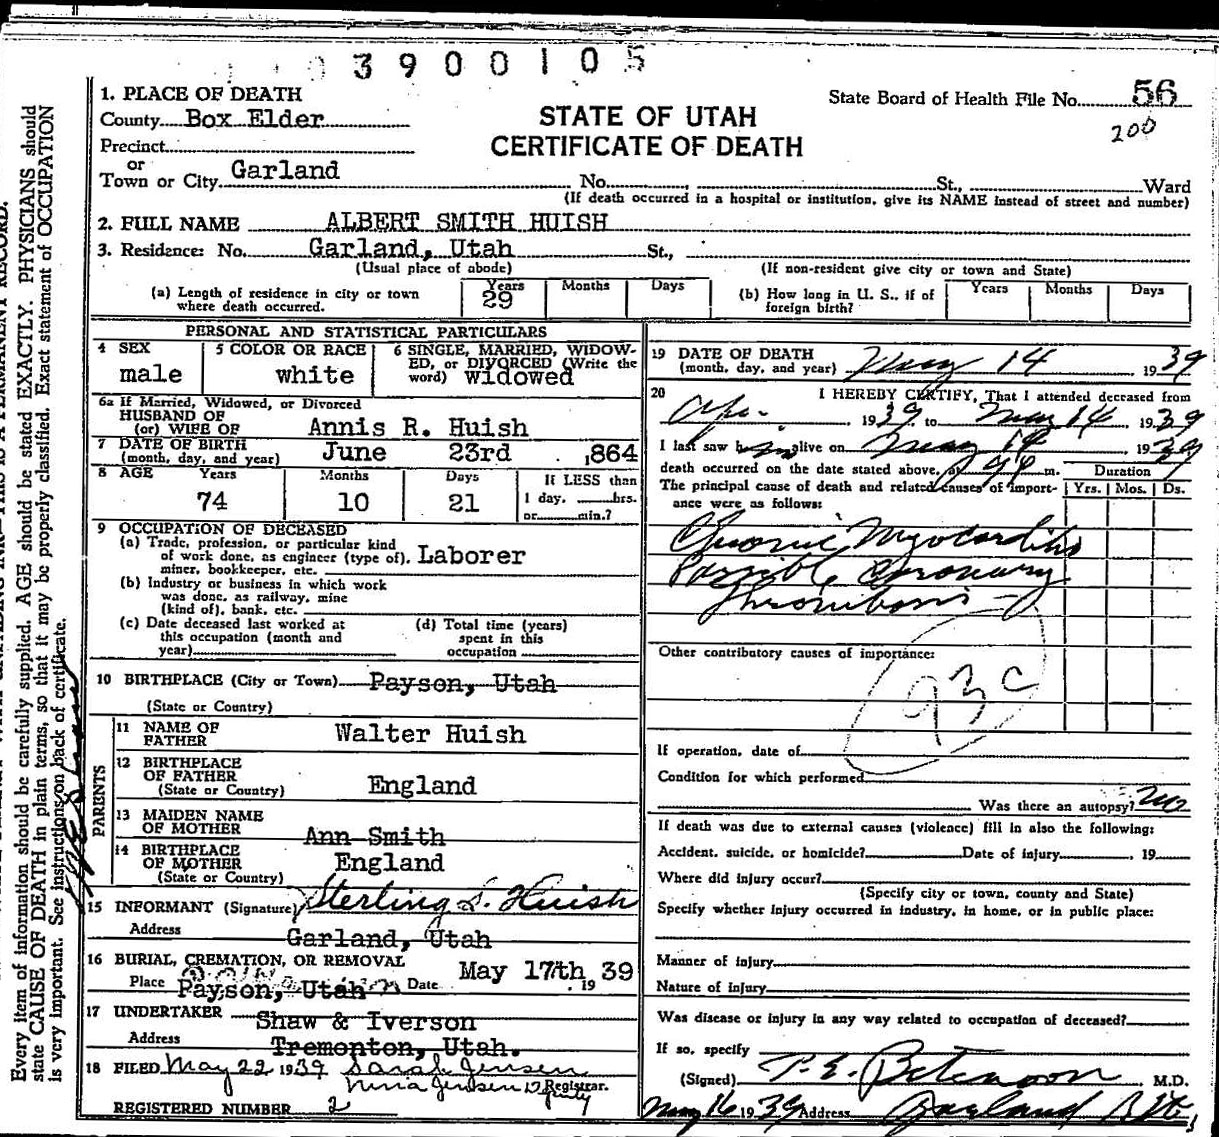 3900105
1. PLACE OF DEATH
County Box Elder
Precinct
or
Town or City Garland
STATE OF UTAH
CERTIFICATE OF DEATH
State Board of Health File No. 56
200
No. St., Ward
(If death occurred in a hospital or institution, give its NAME instead of street and number)
2. FULL NAME ALBERT SMITH HUISH
3. Residence: No. Garland, Utah St.,
(Usual place of abode) (If non-resident give city or town and State)
(a) Length of residence in city or town where death occurred. Years 29 Months Days
(b) How long in U. S., if of foreign birth? Years Months Days
PERSONAL AND STATISTICAL PARTICULARS
4 SEX male
5 COLOR OR RACE white
6 SINGLE, MARRIED, WIDOW-
ED, or DIVORCED (Write the
word) widowed
6a If Married, Widowed, or Divorced
HUSBAND OF
(or) WIFE OF Annis R. Huish
7 DATE OF BIRTH
(month, day, and year) June 23rd 1864
8 AGE Years 74 Months 10 Days 21
If LESS than
1 day, hrs.
or min.?
9 OCCUPATION OF DECEASED
(a) Trade, profession, or particular kind
of work done, as engineer (type of), Laborer
miner, bookkeeper, etc.
(b) Industry or business in which work
was done, as railway, mine
(kind of), bank, etc.
(c) Date deceased last worked at
this occupation (month and
year)
(d) Total time (years)
spent in this
occupation
10 BIRTHPLACE (City or Town) Payson, Utah
(State or Country)
PARENTS
11 NAME OF
FATHER Walter Huish
12 BIRTHPLACE
OF FATHER England
(State or Country)
13 MAIDEN NAME
OF MOTHER Ann Smith
14 BIRTHPLACE
OF MOTHER England
(State or Country)
15 INFORMANT (Signature) Sterling S. Huish
Address Garland, Utah
16 BURIAL, CREMATION, OR REMOVAL
Place Payson, Utah Date May 17th 1939
17 UNDERTAKER Shaw & Iverson
Address Tremonton, Utah.
18 FILED May 22 1939 Sarah Jensen
Nina Jensen Deputy Registrar.
REGISTERED NUMBER 2
19 DATE OF DEATH
(month, day, and year) May 14 1939
20 I HEREBY CERTIFY, That I attended deceased from
Apr. 1939 to May 14 1939
I last saw him alive on May 14 1939
death occurred on the date stated above, at m.
The principal cause of death and related causes of import-
ance were as follows:
Duration
Yrs. Mos. Ds.
Chronic Myocarditis
Possible Coronary
Thrombosis
Other contributory causes of importance:
93c
If operation, date of
Condition for which performed
Was there an autopsy? no
If death was due to external causes (violence) fill in also the following:
Accident, suicide, or homicide? Date of injury , 19
Where did injury occur?
(Specify city or town, county and State)
Specify whether injury occurred in industry, in home, or in public place:
Manner of injury
Nature of injury
Was disease or injury in any way related to occupation of deceased?
If so, specify
(Signed) M.D.
May 16 1939 Address Garland Ut
Every item of information should be carefully supplied. AGE should be stated EXACTLY. PHYSICIANS should
state CAUSE OF DEATH in plain terms, so that it may be properly classified. Exact statement of OCCUPATION
is very important. See instructions on back of certificate.